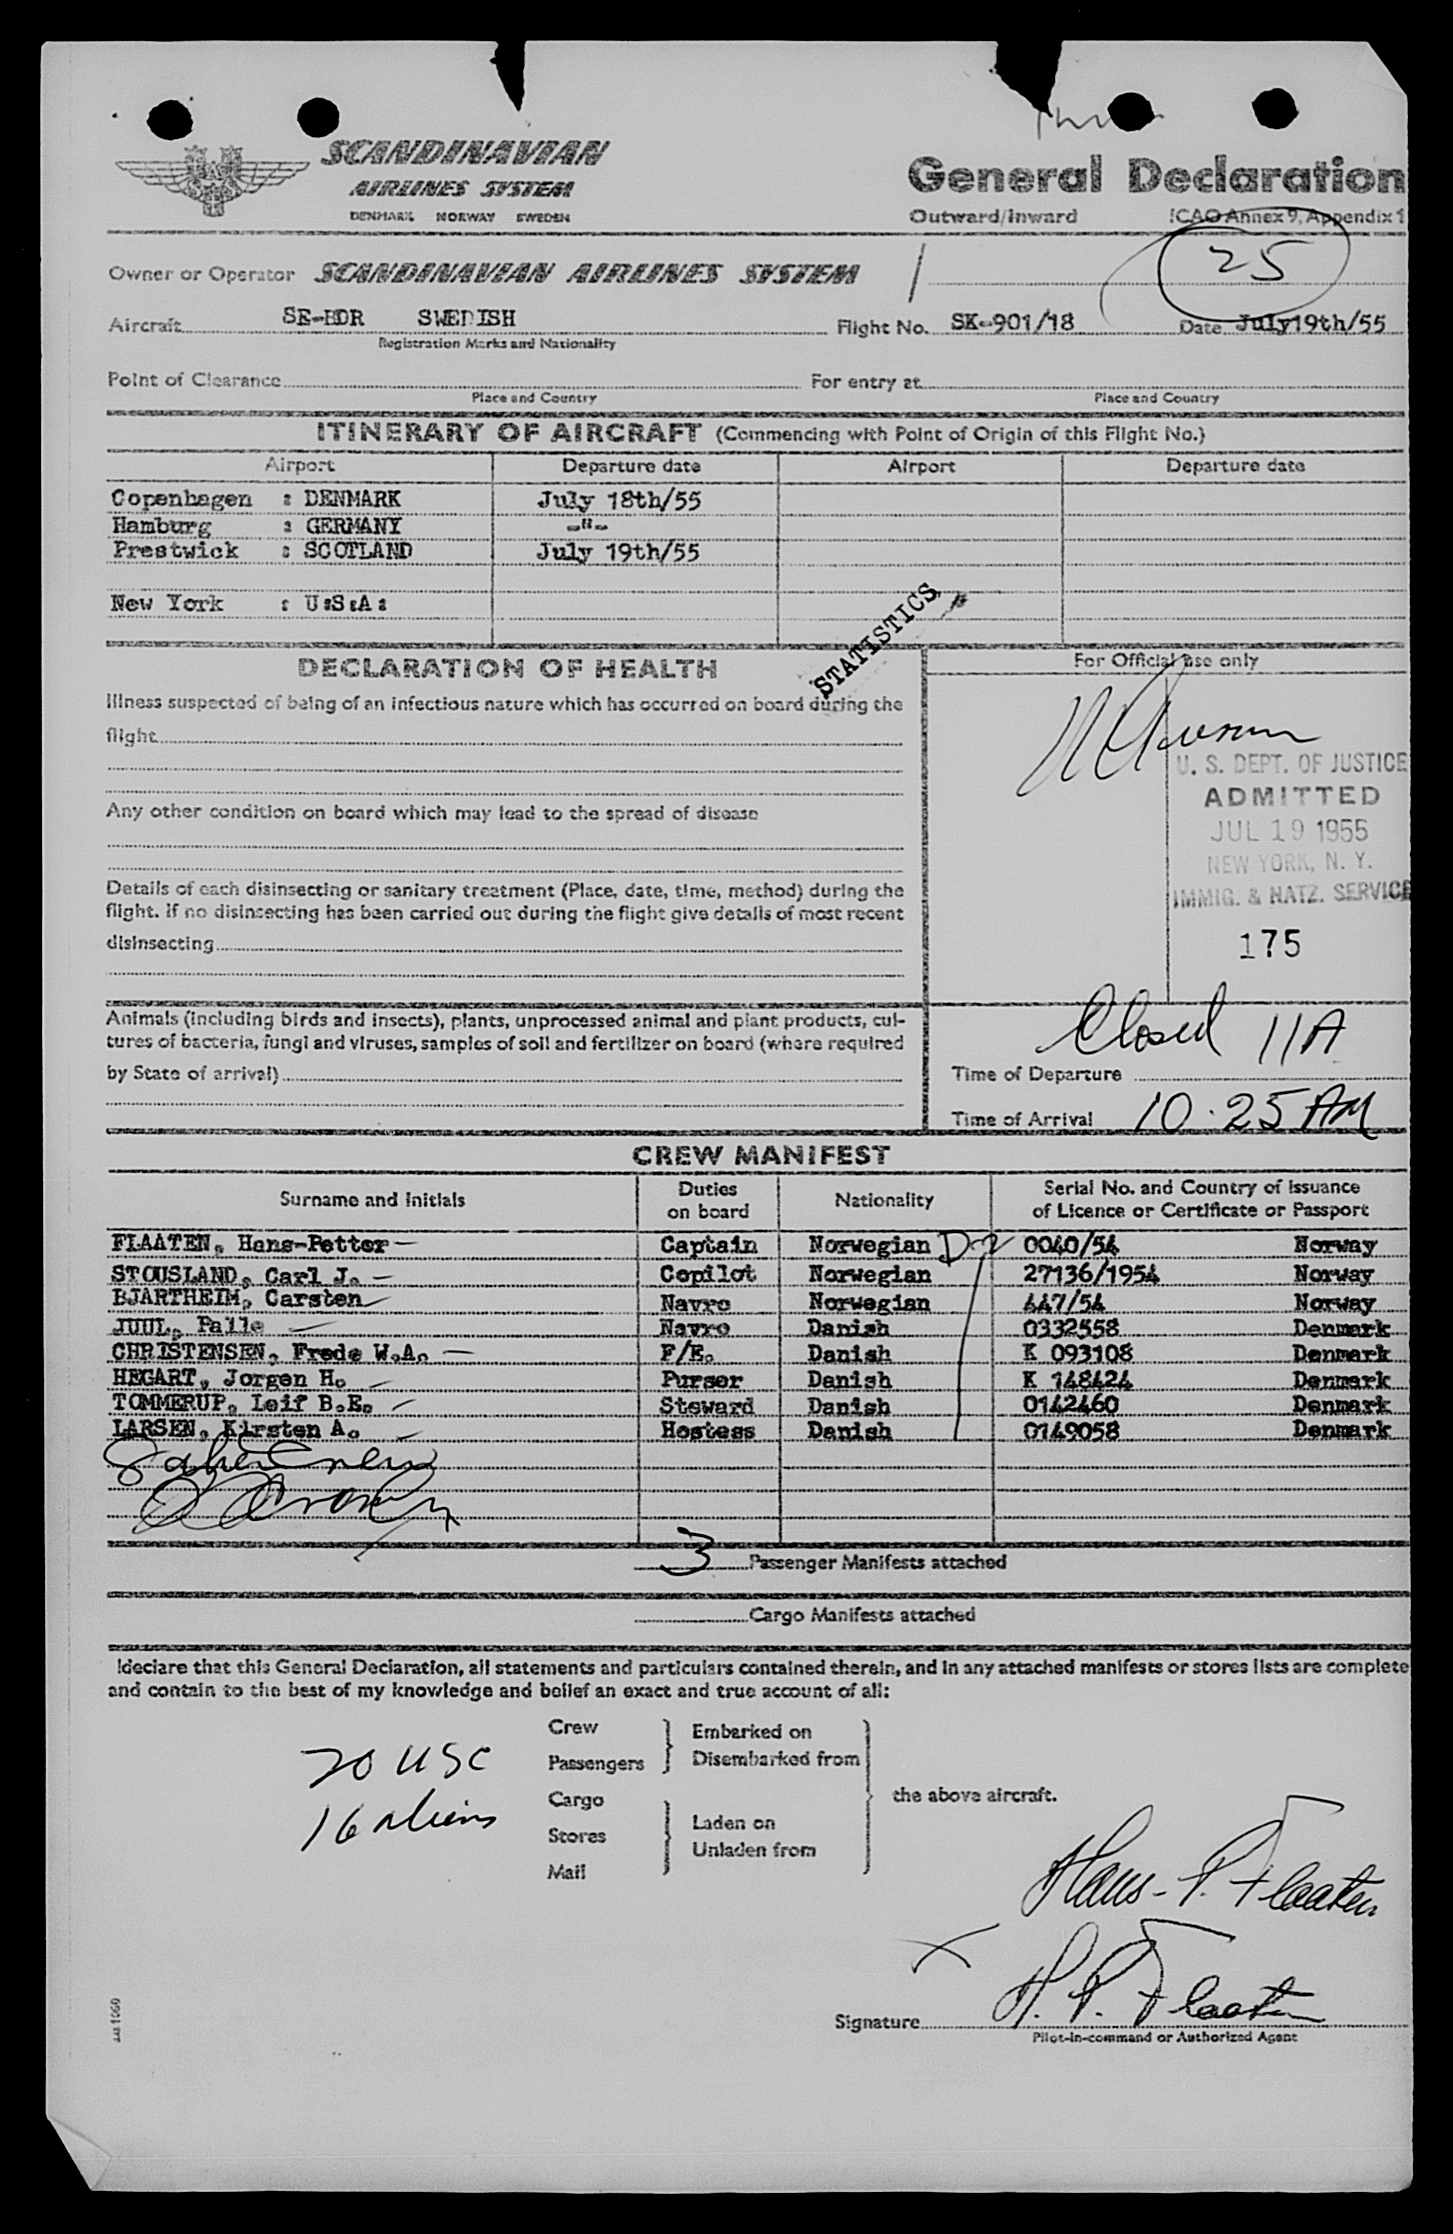 SCANDINAVIAN
AIRLINES SYSTEM
DENMARK NORWAY SWEDEN
General Declaration
Outward/Inward ICAO Annex 9, Appendix 1
25
Owner or Operator SCANDINAVIAN AIRLINES SYSTEM
Aircraft SE-BDR SWEDISH Flight No. SK-901/18 Date July19th/55
Registration Marks and Nationality
Point of Clearance For entry at
Place and Country Place and Country
ITINERARY OF AIRCRAFT (Commencing with Point of Origin of this Flight No.)
Airport Departure date Airport Departure date
Copenhagen : DENMARK July 18th/55
Hamburg : GERMANY -"-
Prestwick : SCOTLAND July 19th/55
New York : U:S:A:
STATISTICS
DECLARATION OF HEALTH
For Official use only
Illness suspected of being of an infectious nature which has occurred on board during the
flight
Any other condition on board which may lead to the spread of disease
Details of each disinsecting or sanitary treatment (Place, date, time, method) during the
flight. If no disinsecting has been carried out during the flight give details of most recent
disinsecting
U. S. DEPT. OF JUSTICE
ADMITTED
JUL 19 1955
NEW YORK, N. Y.
IMMIG. & NATZ. SERVICE
175
Animals (including birds and insects), plants, unprocessed animal and plant products, cul-
tures of bacteria, fungi and viruses, samples of soil and fertilizer on board (where required
by State of arrival)
Closed 11A
Time of Departure
Time of Arrival 10.25 AM
CREW MANIFEST
Surname and Initials Duties on board Nationality Serial No. and Country of Issuance of Licence or Certificate or Passport
FLAATEN, Hans-Petter Captain Norwegian 0040/54 Norway
STOUSLAND, Carl J. Copilot Norwegian 27136/1954 Norway
BJARTHEIM, Carsten Navro Norwegian 447/54 Norway
JUUL, Palle Navro Danish 0332558 Denmark
CHRISTENSEN, Frede W.A. F/E. Danish K 093108 Denmark
HEGART, Jorgen H. Purser Danish K 148424 Denmark
TOMMERUP, Leif B.E. Steward Danish 0142460 Denmark
LARSEN, Kirsten A. Hostess Danish 0149058 Denmark
3 Passenger Manifests attached
Cargo Manifests attached
I declare that this General Declaration, all statements and particulars contained therein, and in any attached manifests or stores lists are complete
and contain to the best of my knowledge and belief an exact and true account of all:
20 USC
16 aliens
Crew
Passengers
Embarked on
Disembarked from
Cargo
Stores
Mail
Laden on
Unladen from
the above aircraft.
Hans-P. Flaaten
X
Signature H. P. Flaaten
Pilot-in-command or Authorized Agent